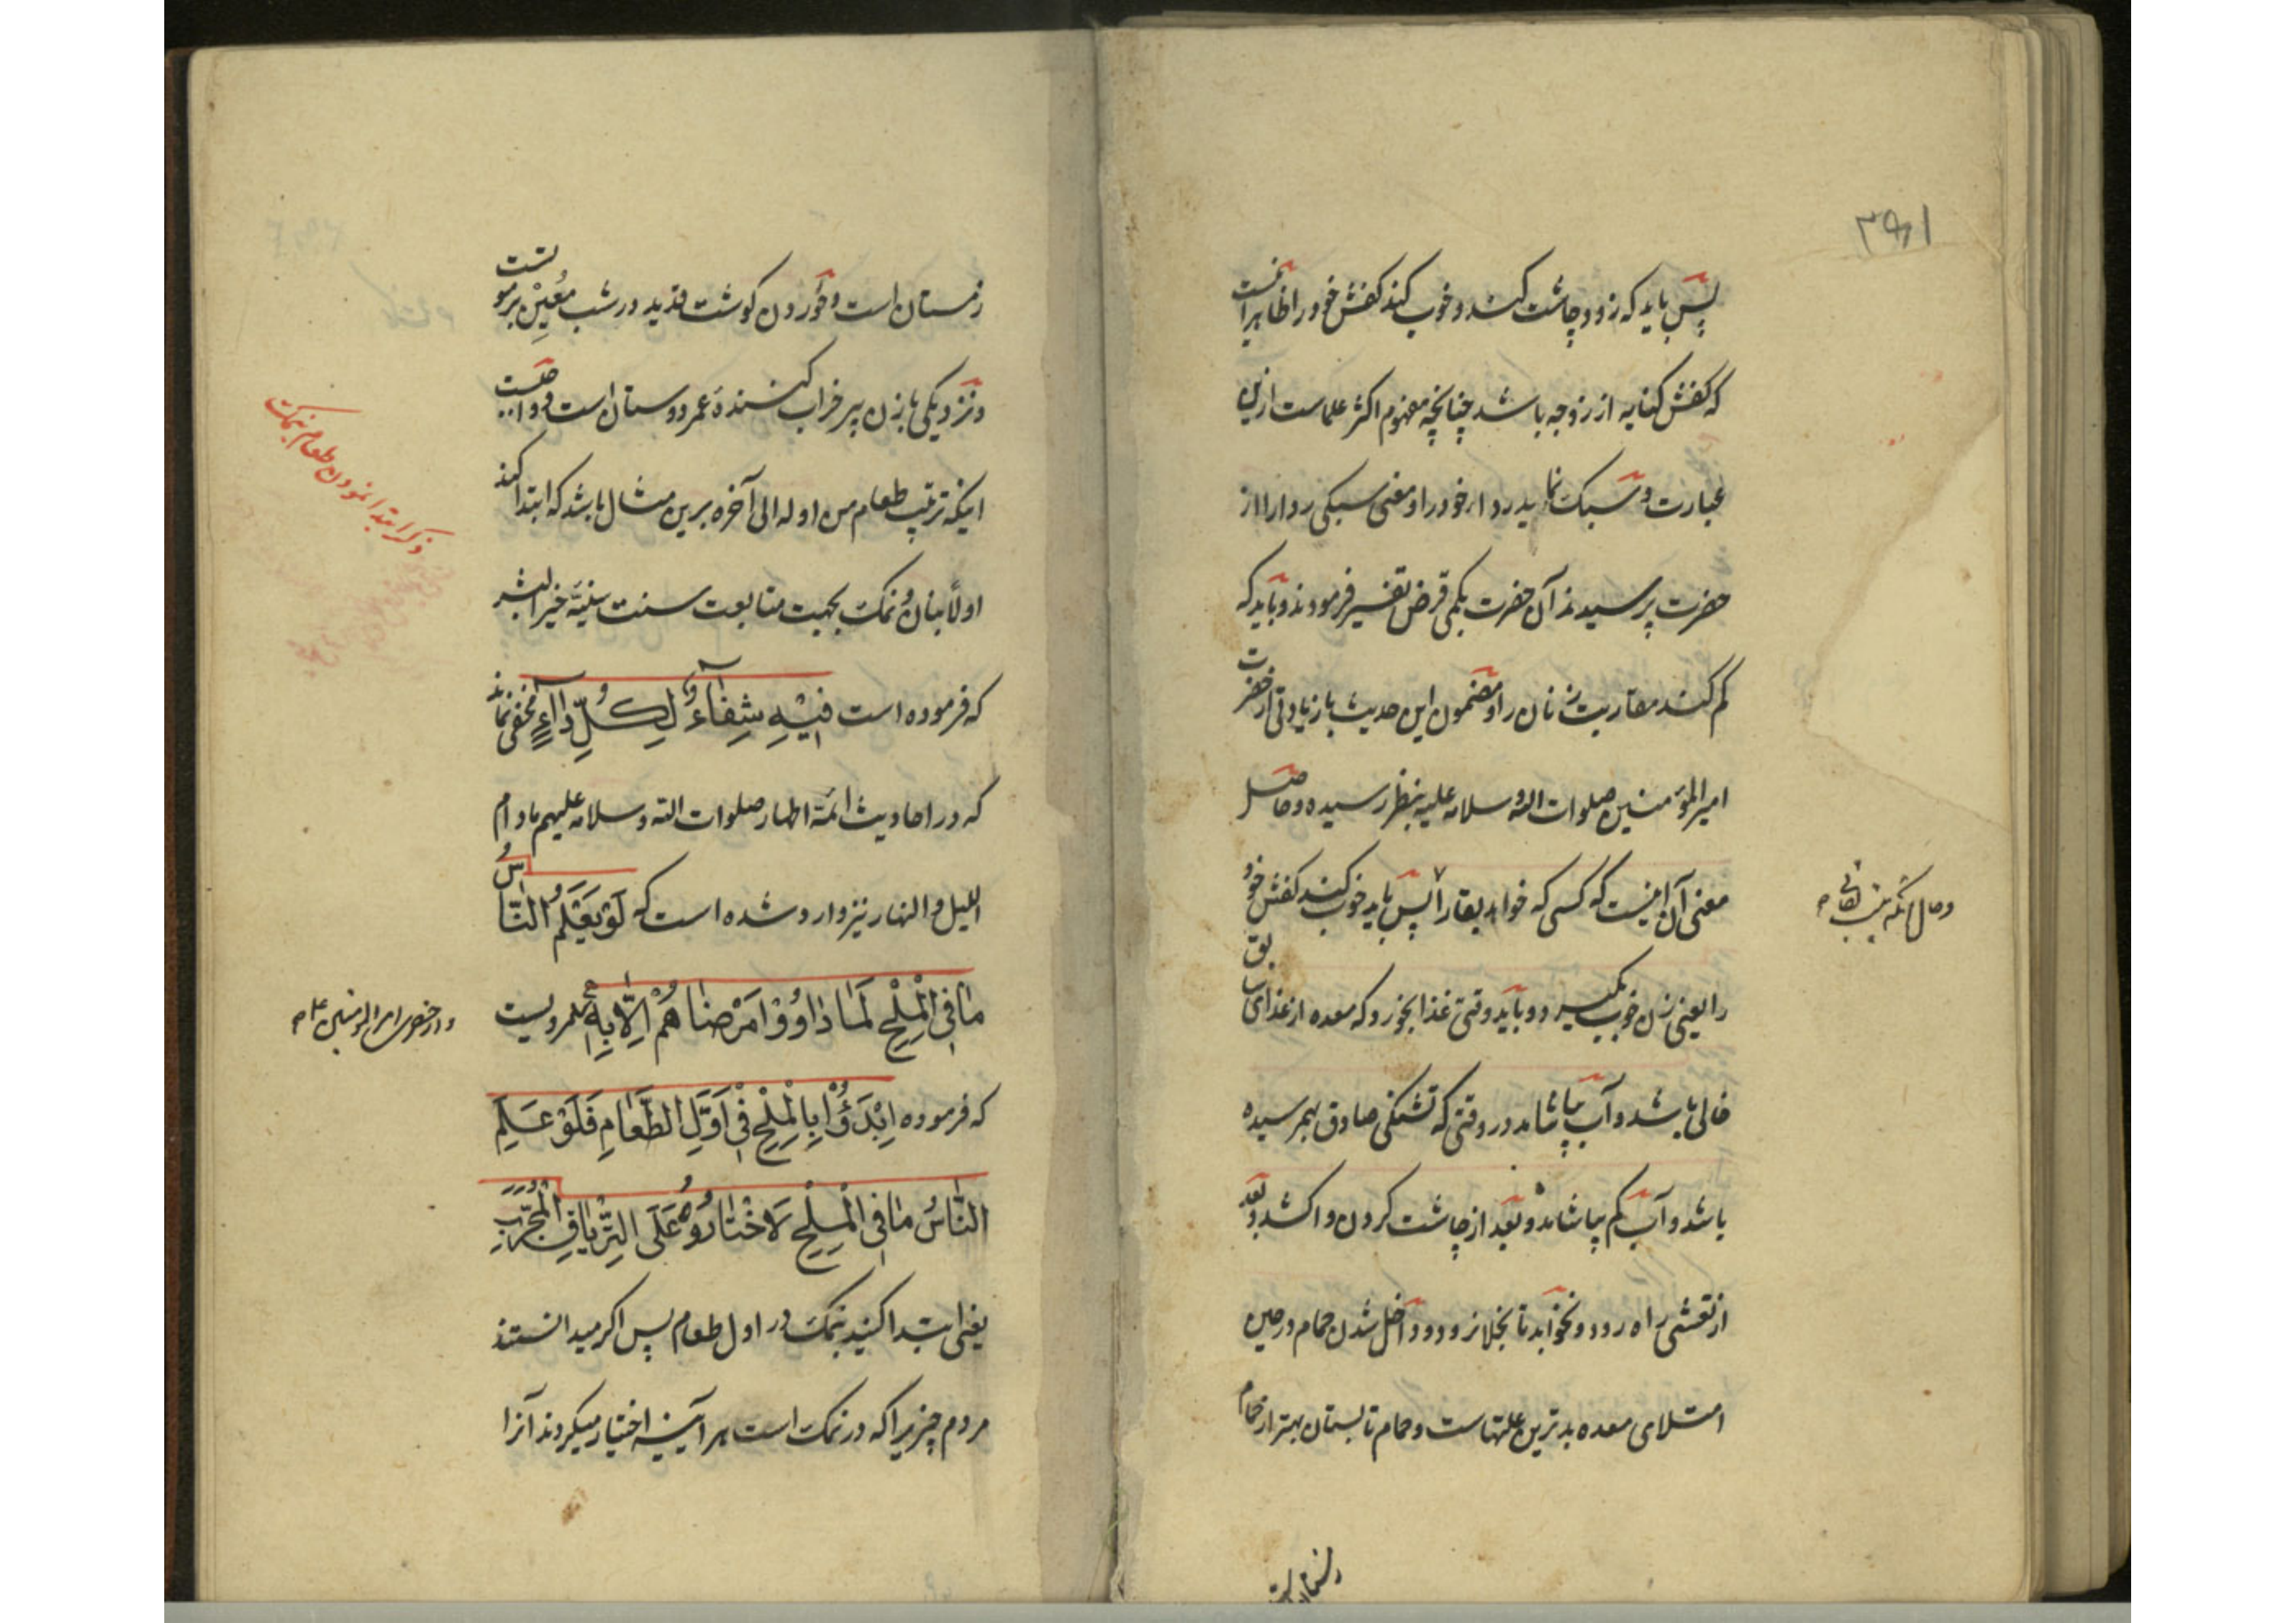 ۳۹۱
پس باید که زود چاشت کند و خوب کند کفش خود را ظاهرا آنست
که کفش کنایه از زوجه باشد چنانچه مفهوم اکثر علماست ازین
عبارت و سبک نماید ردا خود را و معنی سبکی ردا را از
حضرت پرسیدند آن حضرت بکمی قرض تفسیر فرمودند و باید که
کم کند مقاربت زنان را و مضمون این حدیث با زیادتی از حضرت
امیرالمؤمنین صلوات الله و سلامه علیه بنظر رسیده و حاصل
معنی آن اینست که کسی که خواهد بقا را پس باید خوب کند کفش خود
وحال آنکه نیست بقائی
را یعنی زن خوب بگیرد و باید وقتی غذا بخورد که معده از غذای سابق
خالی باشد و آب بیاشامد در وقتی که تشنگی صادق بهم رسیده
باشد و آب کم بیاشامد و بعد از چاشت کردن واکشد و بعد
از تعشی راه رود و نخوابد تا بخلا نرود و داخل شدن حمام در حین
امتلای معده بدترین علتهاست و حمام تابستان بهتر از حمام
زمستان است و خوردن گوشت قدید در شب معین بر موتست
و نزدیکی با زن پیر خراب کنندهٔ عمر دوستان است و وصیت
اینکه ترتیب طعام من اوله الی آخره برین مثال باشد که ابتدا کند
ذکر ابتدا نمودن طعام بنمک
اولاً بنان و نمک بجهت متابعت سنت سنیّه خیر البشر
که فرموده است فِیْهِ شِفَاءٌ لِکُلِّ دَاءٍ مخفی نماند
که در احادیث ائمّهٔ اطهار صلوات الله و سلامه علیهم مادام
اللیل و النهار نیز وارد شده است که لَوْ یَعْلَمُ النَّاسُ
مَا فِی الْمِلْحِ لَمَا دَاوُوْا مَرْضَاهُمْ اِلَّا بِهِ مرویست
و از حضرت امیر المومنین علیه السلام
که فرموده اِبْدَؤُا بِالْمِلْحِ فِیْ اَوَّلِ الطَّعَامِ فَلَوْ عَلِمَ
النَّاسُ مَا فِی الْمِلْحِ لَاخْتَارُوْهُ عَلَی التِّرْیَاقِ الْمُجَرَّبِ
یعنی ابتدا کنید بنمک در اول طعام پس اکر میدانستند
مردم چیزیرا که در نمک است هر آینه اختیار میکردند آنرا